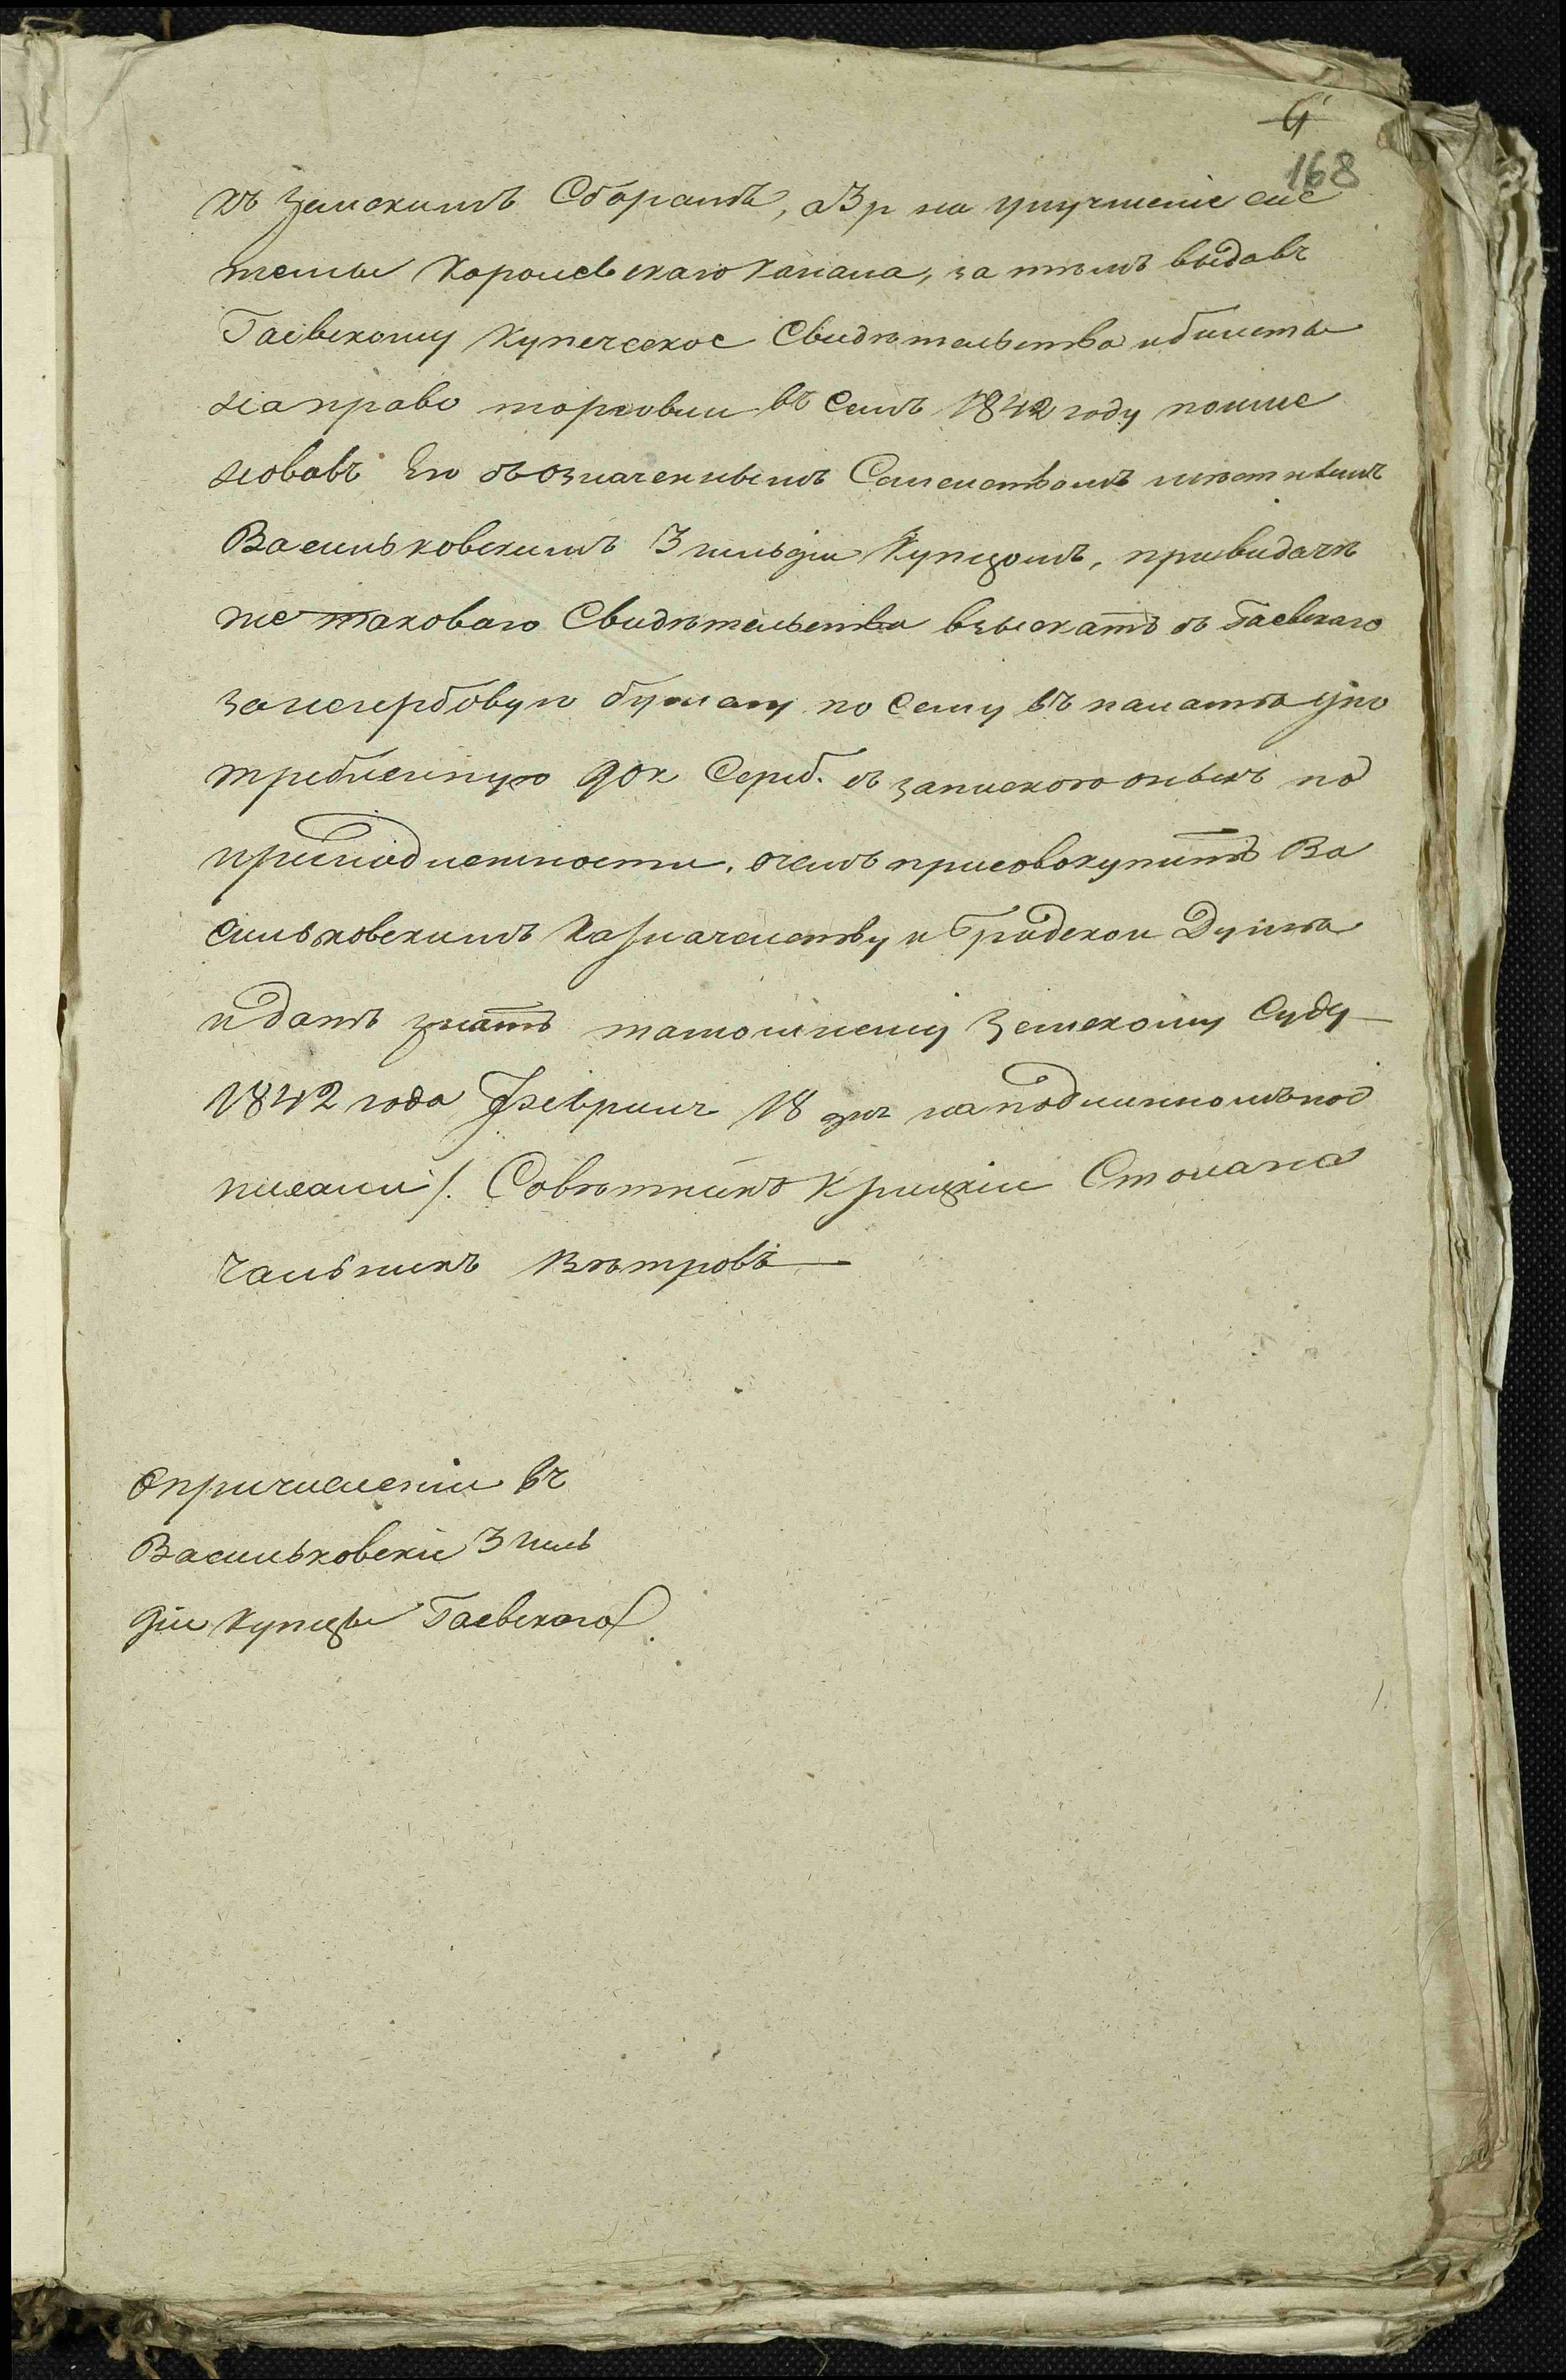 168
къ Земскимъ Сборамъ, а 3 р на улучшеніе сис
темы Королевскаго канала, за тѣмъ выдавъ
Гаевскому Купеческое Свидѣтельства и билеты
на право торговли въ Семъ 1842 году поиме
новавъ Его съ означеннымъ Семействомъ мѣстнымъ
Васильковскимъ 3 гильдіи Купцомъ, при выдачѣ
же таковаго Свидѣтельства взыскать съ Гаевскаго
за негербовую бумагу по Сему въ палатѣ упо
требленную 90 к Сереб. съ запискою оныхъ по
принадлежности. о чемъ присовокупить Ва
сильковскимъ Казначейству и Градской Думѣ
и дать знать тамошнему Земскому Суду
1842 года Февраля 18 дня на подлинномъ под
писали /. Совѣтникъ Крицкій Столона
чальникъ Вѣтровъ
О причисленіи въ
Васильковскіе 3 гиль
діи Купцы Гаевскаго